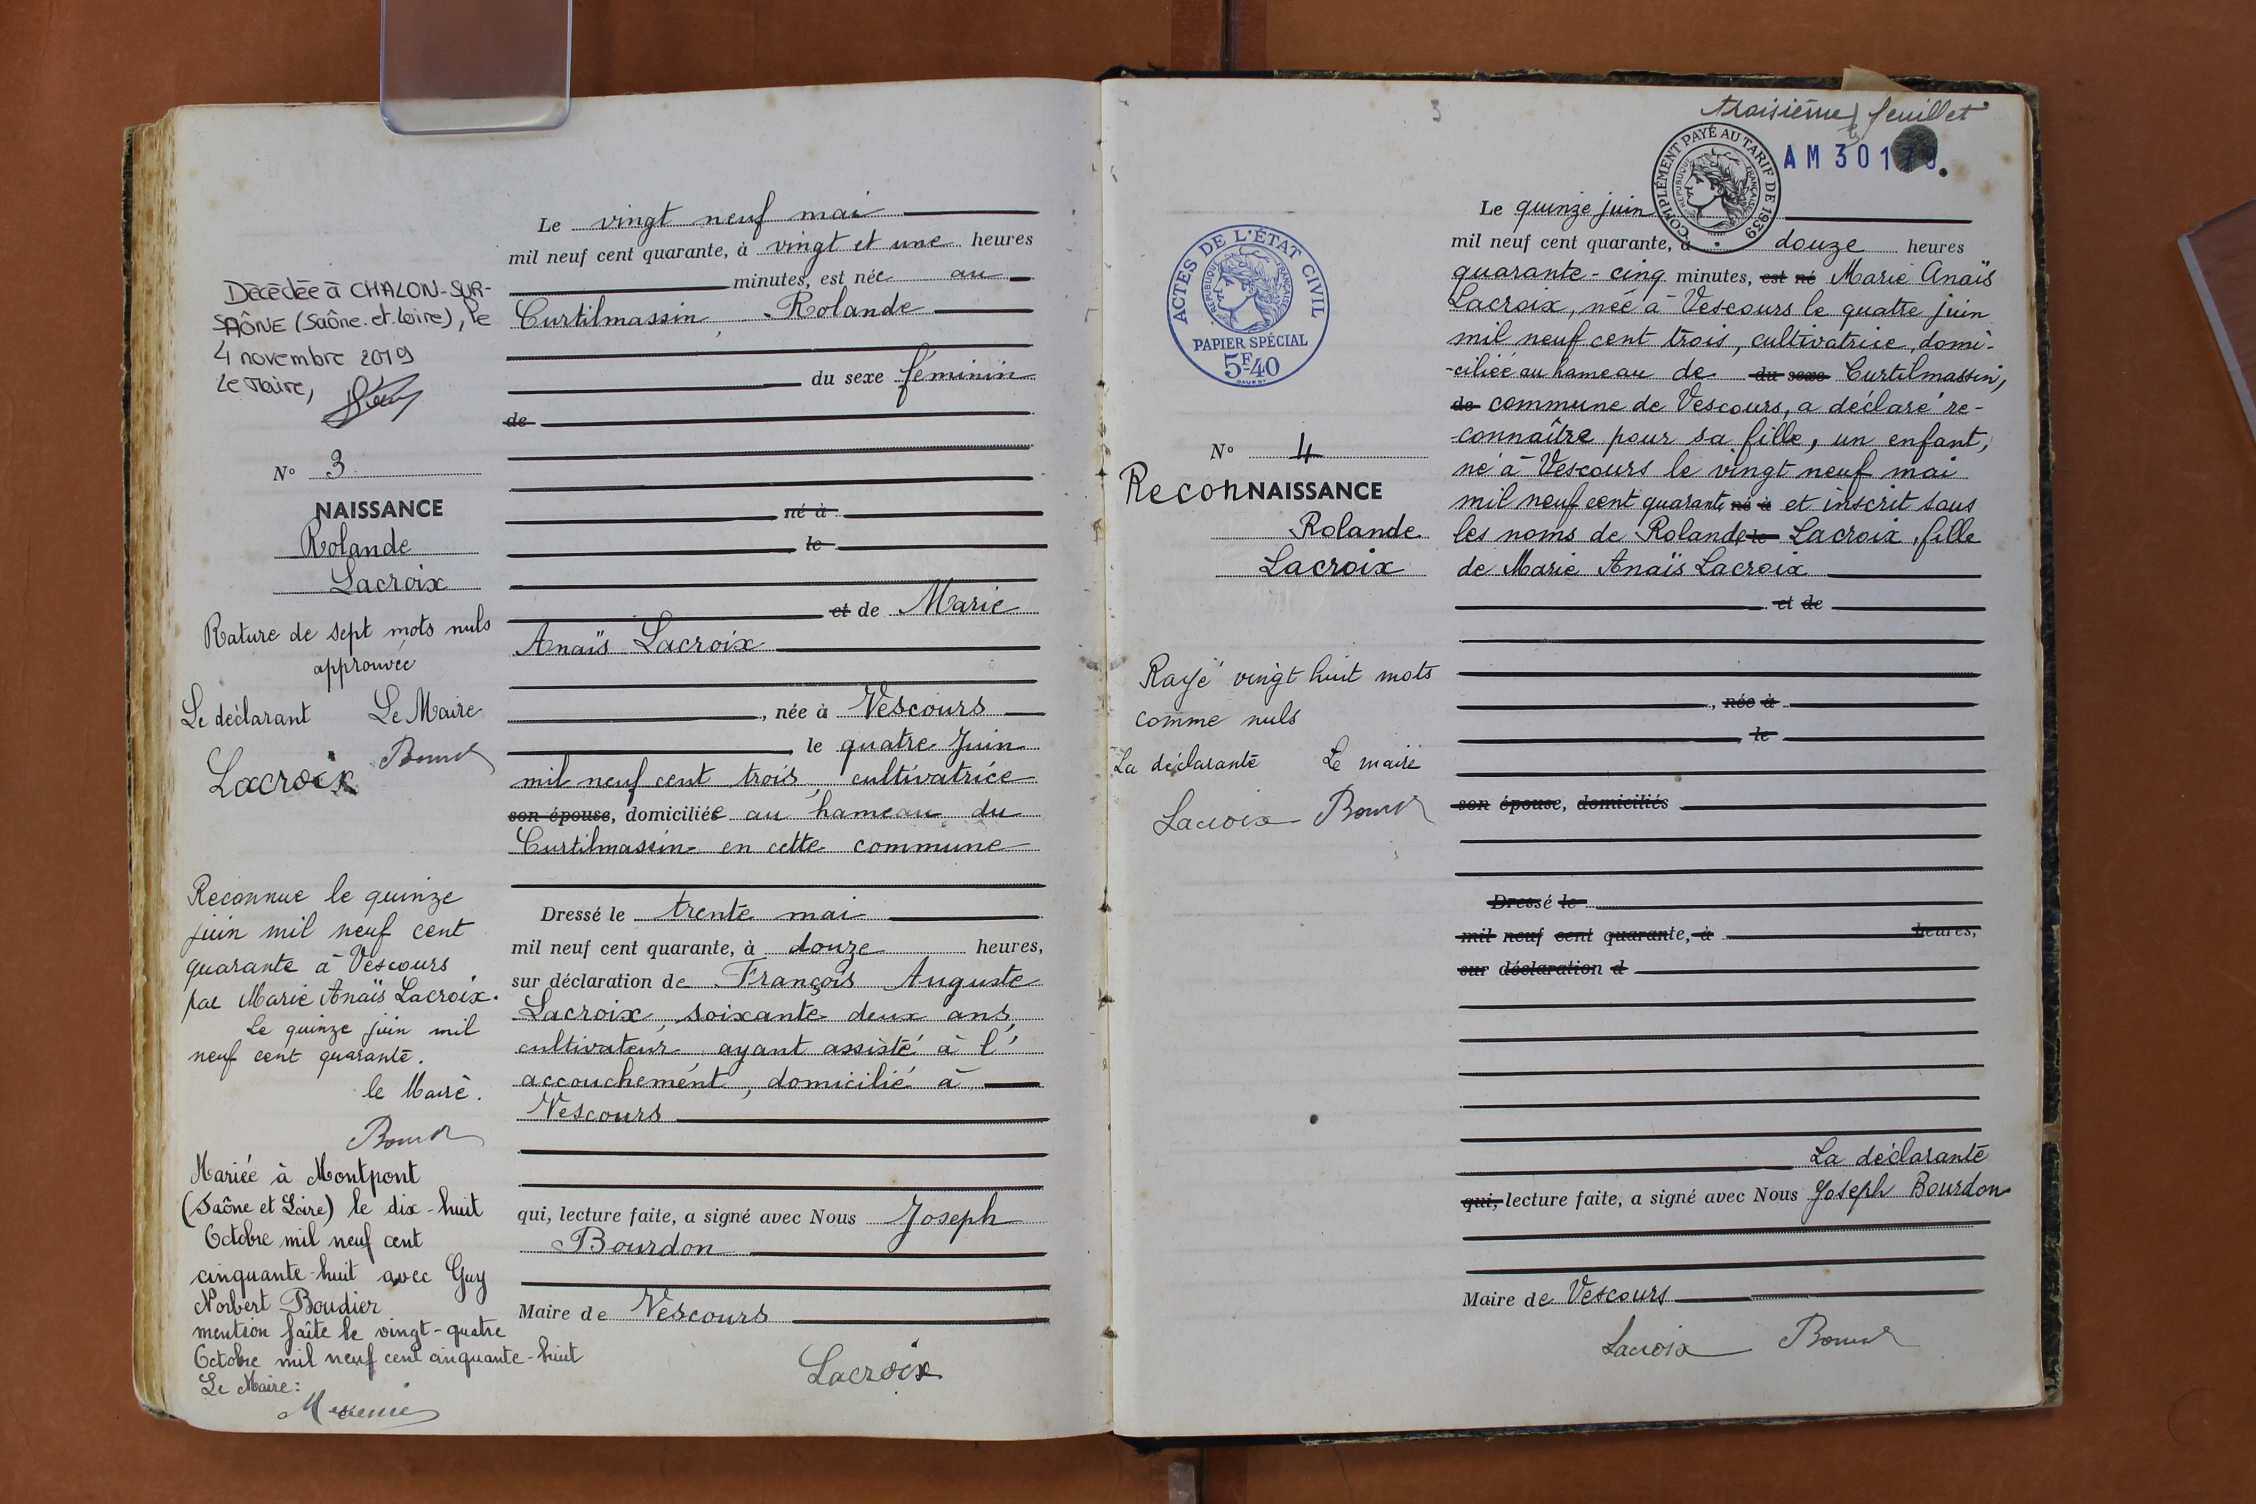 Décédée à CHALON-SUR-
SAÔNE (Saône.et.Loire), le
4 novembre 2019
Le Maire,
N° 3
NAISSANCE
Rolande
Lacroix
Rature de sept mots nuls
approuvée
Le déclarant Le Maire
Lacroix
Reconnue le quinze
juin mil neuf cent
quarante à Vescours
par Marie Anaïs Lacroix.
Le quinze juin mil
neuf cent quarante.
le Maire.
Mariée à Montpont
(Saône et Loire) le dix-huit
Octobre mil neuf cent
cinquante-huit avec Guy
Norbert Boudier
mention faîte le vingt-quatre
Octobre mil neuf cent cinquante-huit
Le Maire:
Le vingt neuf mai
mil neuf cent quarante, à vingt et une heures
minutes, est née au
Curtilmassin, Rolande
du sexe féminin
de
né à
le
et de Marie
Anaïs Lacroix
, née à Vescours
le quatre Juin
mil neuf cent trois, cultivatrice
son épouse, domiciliée au hameau du
Curtilmassin en cette commune
Dressé le trente mai
mil neuf cent quarante, à douze heures,
sur déclaration de François Auguste
Lacroix, soixante deux ans,
cultivateur, ayant assisté à l'
accouchement, domicilié à
Vescours
qui, lecture faite, a signé avec Nous Joseph
Bourdon
Maire de Vescours
Lacroix
3
troisième feuillet
COMPLÉMENT PAYÉ AU TARIF DE 1939
RÉPUBLIQUE FRANÇAISE
AM 301
ACTES DE L'ÉTAT CIVIL
RÉPUBLIQUE FRANÇAISE
PAPIER SPÉCIAL
5F40
N° 4
ReconNAISSANCE
Rolande
Lacroix
Rayé vingt huit mots
comme nuls
La déclarante Le maire
Lacroix
Le quinze juin
mil neuf cent quarante, à douze heures
quarante-cinq minutes, est né Marie Anaïs
Lacroix, née à Vescours le quatre juin
mil neuf cent trois, cultivatrice, domi-
-ciliée au hameau de du sexe Curtilmassin,
de commune de Vescours, a déclaré re-
-connaître pour sa fille, un enfant,
né à Vescours le vingt neuf mai
mil neuf cent quarante né à et inscrit sous
les noms de Rolande le Lacroix, fille
de Marie Anaïs Lacroix
et de
, née à
le
son épouse, domiciliés
Dressé le
mil neuf cent quarante, à heures,
sur déclaration d
La déclarante
qui, lecture faite, a signé avec Nous Joseph Bourdon
Maire de Vescours
Lacroix